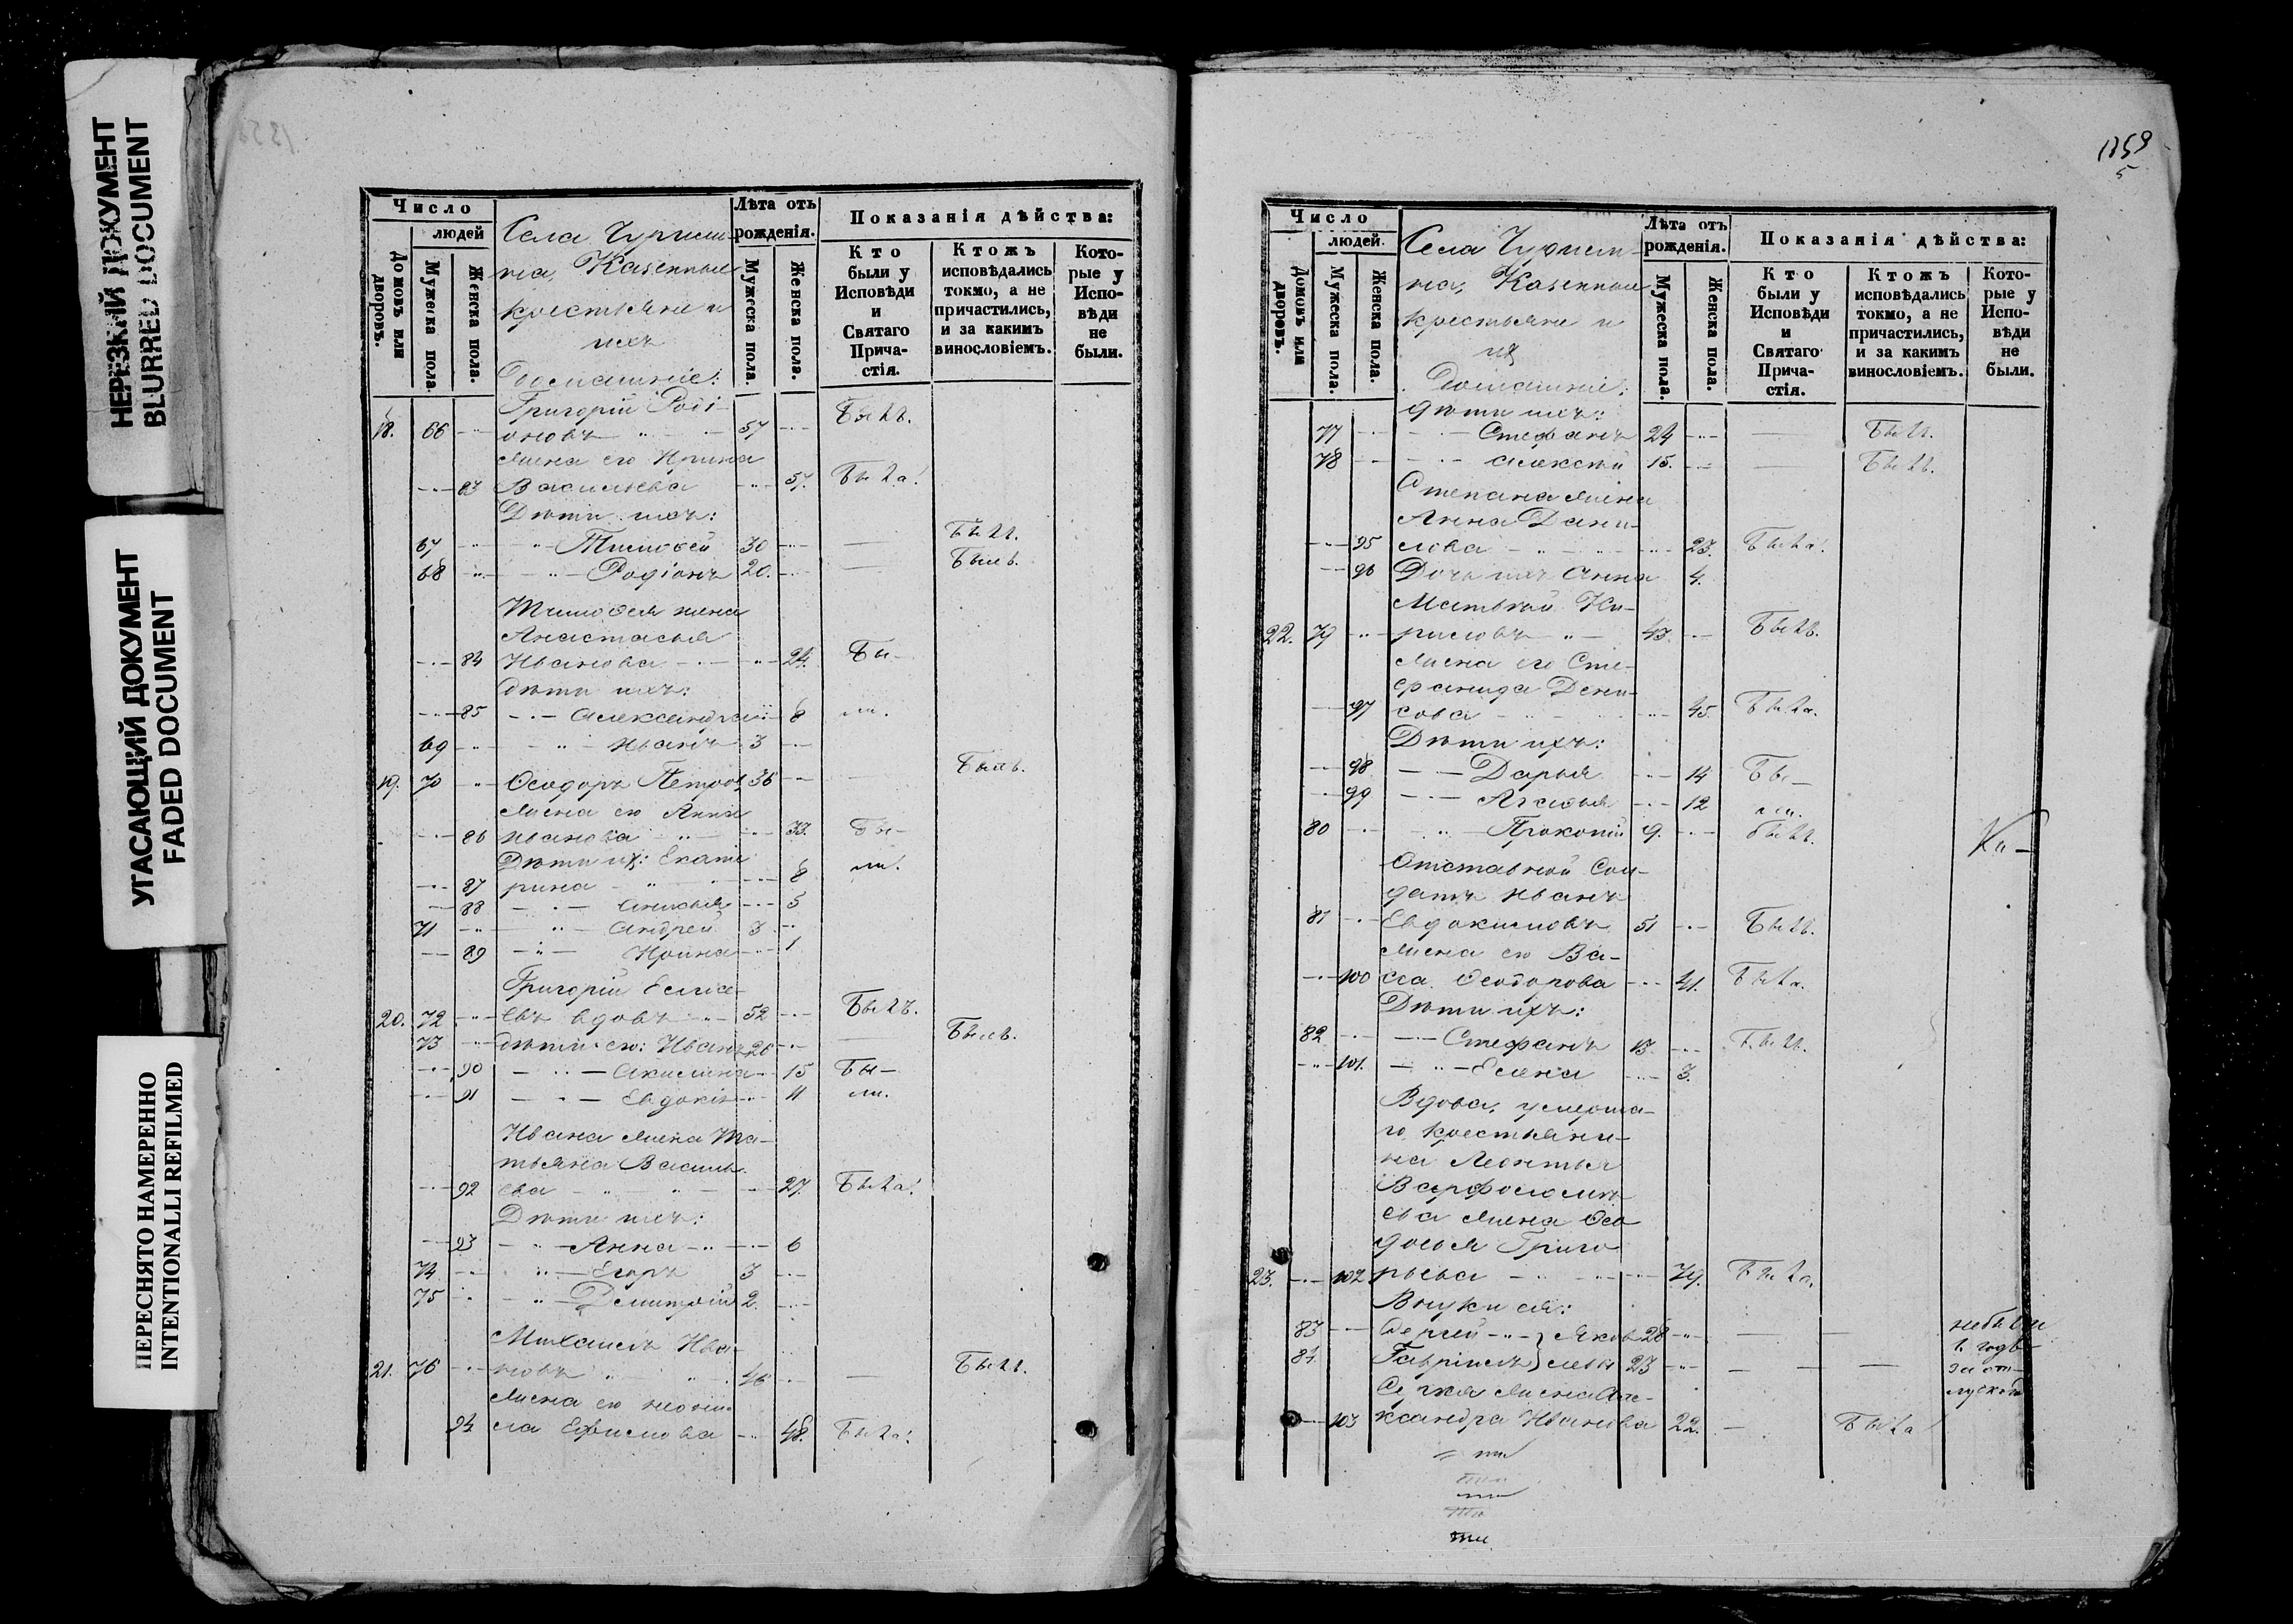 НЕРЕЗКИЙ ДОКУМЕНТ
BLURRED DOCUMENT
УГАСАЮЩИЙ ДОКУМЕНТ
FADED DOCUMENT
ПЕРЕСНЯТО НАМЕРЕННО
INTENTIONALLI REFILMED
Число
людей
Домовъ или дворовъ.
Мужеска пола.
Женска пола.
Села
Казенные
крестьяне и
ихъ
Домашніе:
Лѣта отъ
рожденія.
Мужеска пола.
Женска пола.
Показанія дѣйства:
Кто
были у
Исповѣди
и
Святаго
Прича-
стія.
Ктожъ
исповѣдались
токмо, а не
причастились,
и за какимъ
винословіемъ.
Кото-
рые у
Испо-
вѣди
не
были.
Григорій Роді-
18. 66 оновъ 57 Былъ.
Жена его Ирина
83 Васильева 57. Была.
Дѣти ихъ:
67 Тимофей 30 Былъ.
68 Родіонъ 20. Былъ.
Тимофея жена
Анастасья
84 Иванова 24. Бы-
Дѣти ихъ:
85 Александра 8 ли.
69 Иванъ 3
19. 70 Ѳеодоръ Петровъ 36 Былъ.
Жена его Анна
86 Иванова 33. Бы-
Дѣти ихъ: Екате
87 рина 8 ли.
88 5
71 Андрей 3
89 Ирина 1
Григорій Елисе-
20. 72 евъ вдовъ 52 Былъ.
73 Дѣти его: Иванъ 26 Былъ.
90 Акилина 15 Бы-
91 Евдокія 11 ли.
Ивана жена Та-
тьяна Василь
92 ева 27. Была.
Дѣти ихъ:
93 Анна 6
74 Егоръ 3
75 Дмитрій 2.
Михаилъ Ива-
21. 76 новъ 46 Былъ.
Жена его
94 Ефимова 48. Была.
1359
5
Число
людей.
Домовъ или дворовъ.
Мужеска пола.
Женска пола.
Села
Казенные
крестьяне и
ихъ
Домашніе:
Лѣта отъ
рожденія.
Мужеска пола.
Женска пола.
Показанія дѣйства:
Кто
были у
Исповѣди
и
Святаго
Прича-
стія.
Ктожъ
исповѣдались
токмо, а не
причастились,
и за какимъ
винословіемъ.
Кото-
рые у
Испо-
вѣди
не
были.
Дѣти ихъ:
77 Стефанъ 24 Былъ.
78 Алексѣй 15. Былъ.
Степана жена
Анна Дани-
95 лова 23. Была.
96 Дочь ихъ Анна 4.
Матвѣй Ки-
22. 79 риловъ 43. Былъ.
Жена его Сте-
фанида Дени-
97 сова 45. Была.
Дѣти ихъ:
98 Дарья 14 Бы-
99 Агафья 12 ли.
80 Прокопій 9. Былъ.
Отставной Сол-
датъ Иванъ
81 Евдокимовъ 51 Былъ.
Жена его Ва-
100 сса Ѳеодорова 41. Была.
Дѣти ихъ:
82 Стефанъ 13. Былъ.
101. Елена 3.
Вдова, умерша-
го крестьяни-
на Леонтья
Варфоломѣ
ева жена Ѳео
досья Григо
23. 102 рьева 79. Была.
Внуки ея:
83 Сергѣй Яков 28 небыли
84. Гавріилъ лева 23 1. годъ
за от-
Сергѣя жена Але-
103 ксандра Иванова 22. Была